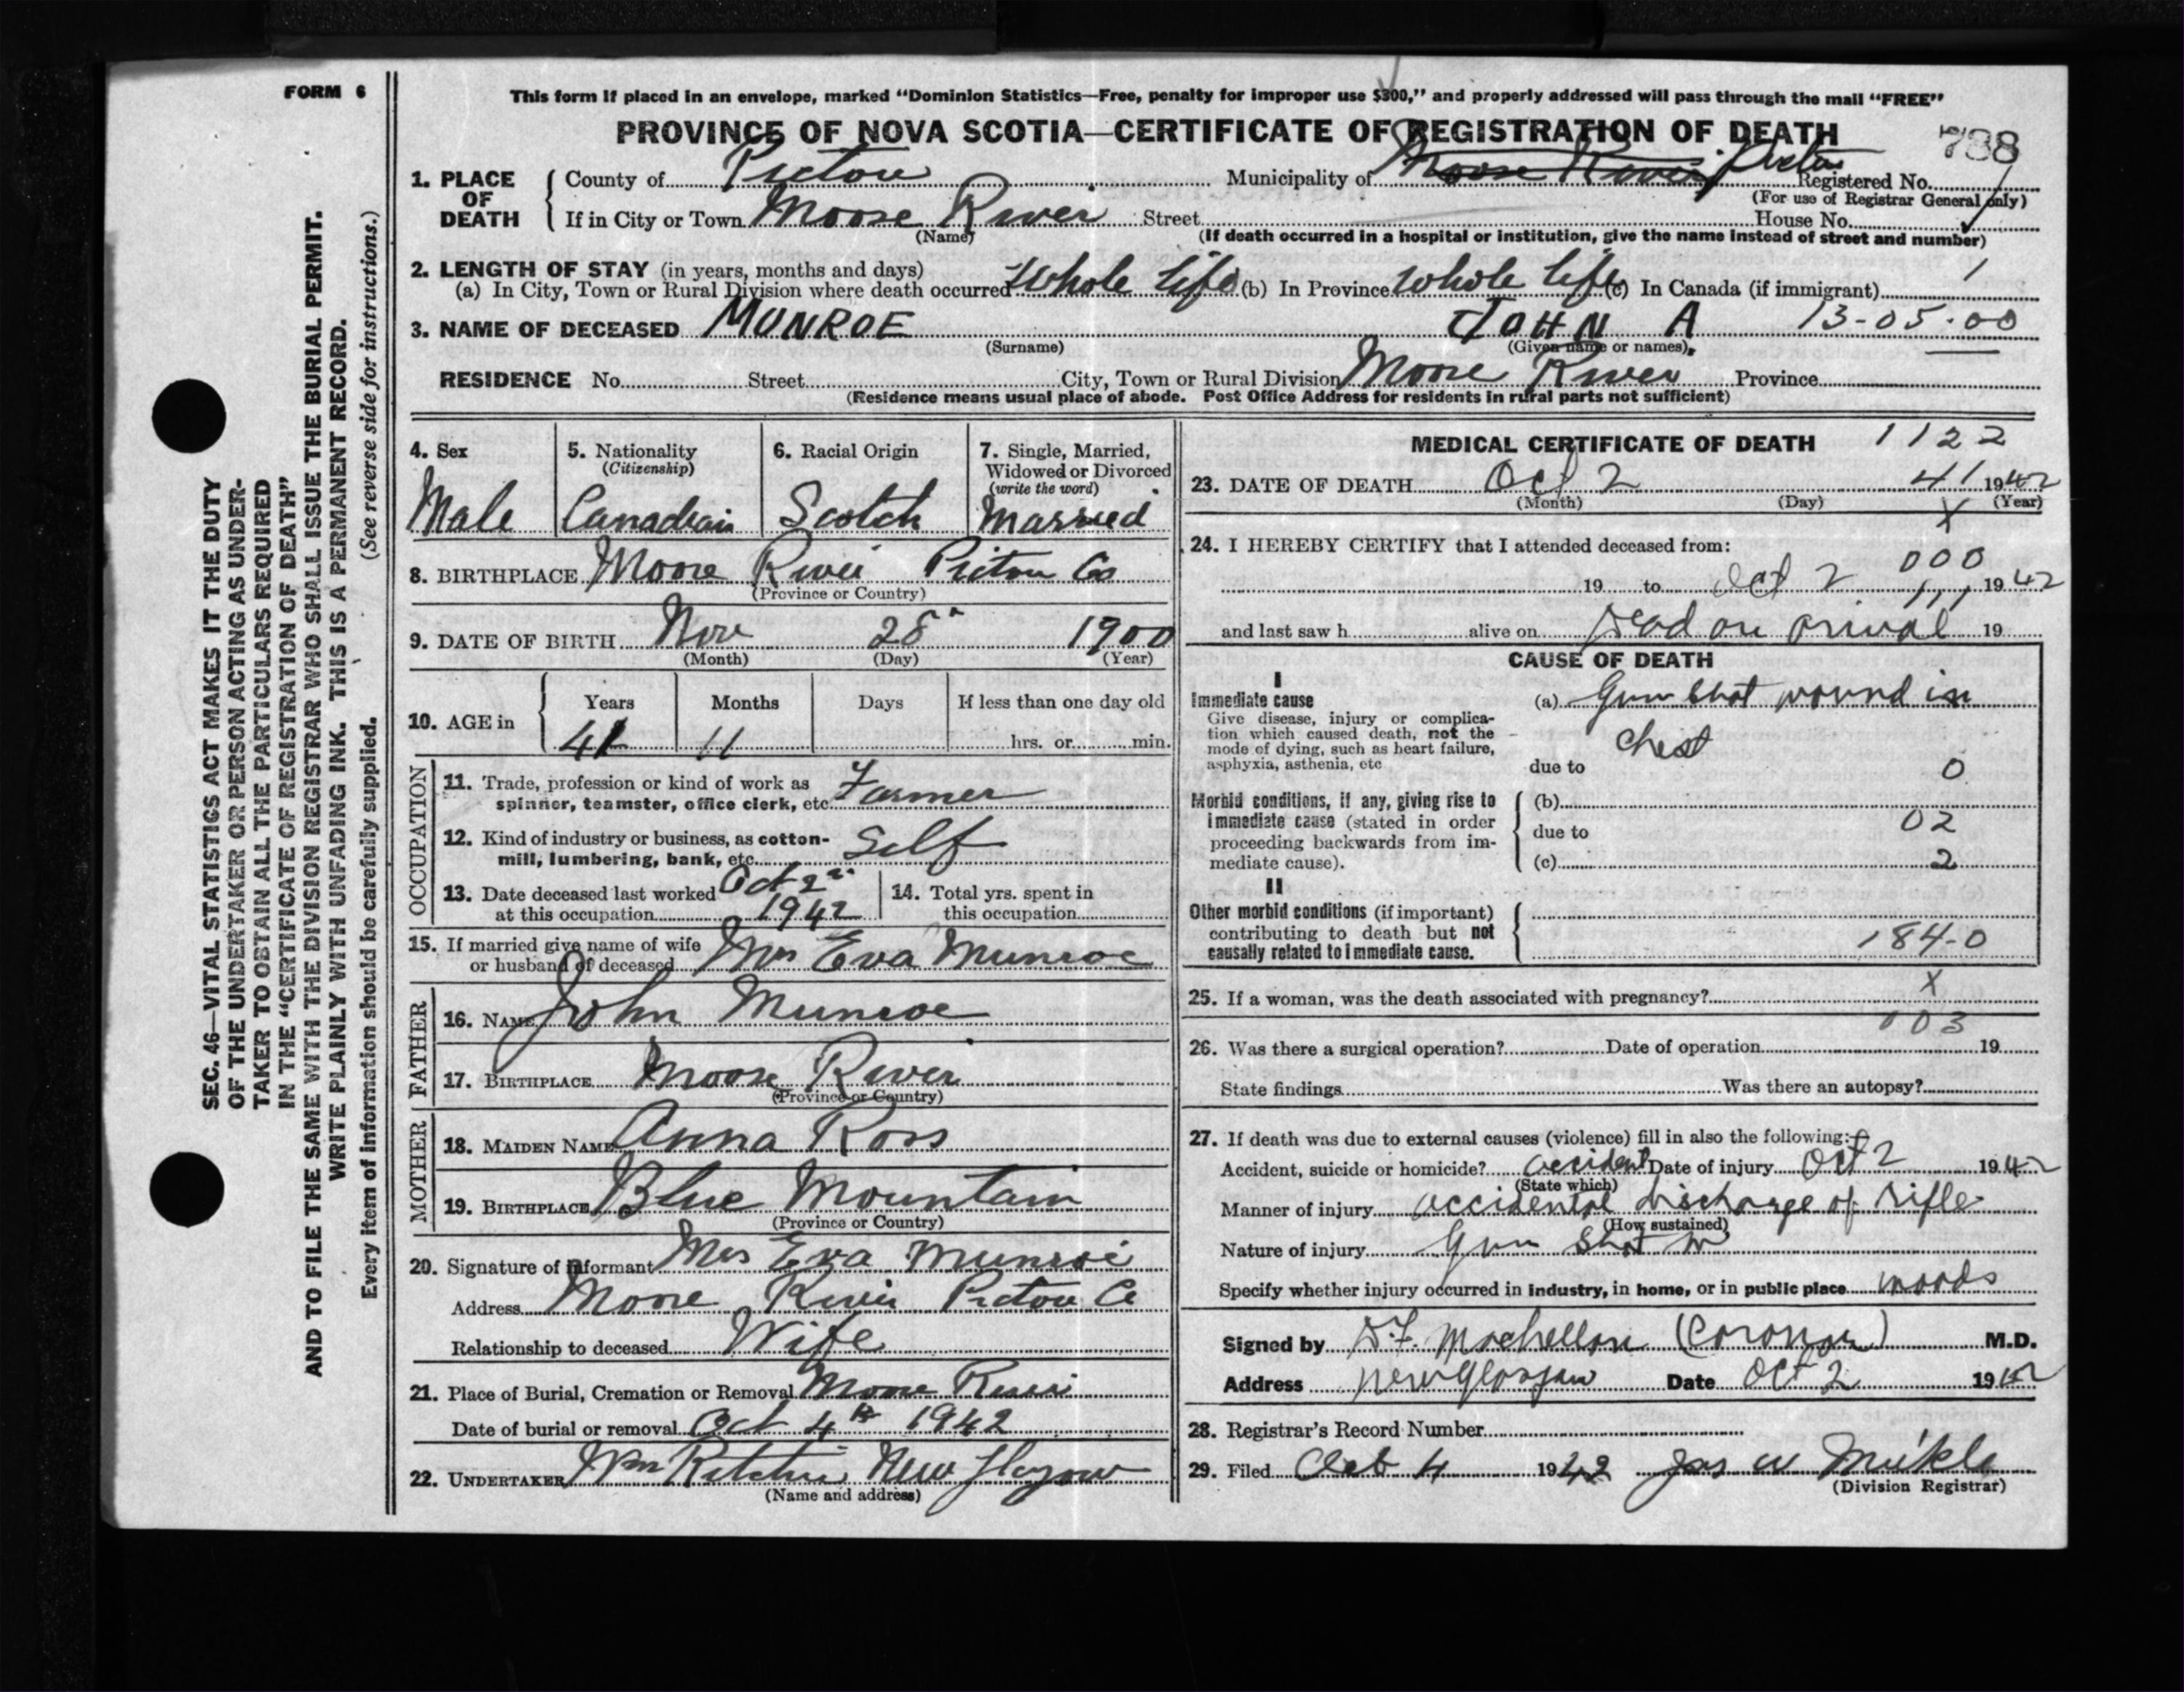 FORM 6
This form if placed in an envelope, marked “Dominion Statistics—Free, penalty for improper use $300,” and properly addressed will pass through the mail “FREE”
PROVINCE OF NOVA SCOTIA—CERTIFICATE OF REGISTRATION OF DEATH
788
1. PLACE OF DEATH
County of Pictou Municipality of Moose River Pictou Registered No.
(For use of Registrar General only)
If in City or Town Moose River Street House No.
(Name) (If death occurred in a hospital or institution, give the name instead of street and number)
2. LENGTH OF STAY (in years, months and days)
(a) In City, Town or Rural Division where death occurred Whole life (b) In Province whole life (c) In Canada (if immigrant)
3. NAME OF DECEASED MUNROE JOHN A 13-05-00
(Surname) (Given name or names)
RESIDENCE No. Street City, Town or Rural Division Moose River Province
(Residence means usual place of abode. Post Office Address for residents in rural parts not sufficient)
4. Sex
Male
5. Nationality
(Citizenship)
Canadian
6. Racial Origin
Scotch
7. Single, Married,
Widowed or Divorced
(write the word)
Married
8. BIRTHPLACE Moose River Pictou Co
(Province or Country)
9. DATE OF BIRTH Nov 28 1900
(Month) (Day) (Year)
10. AGE in
Years Months Days If less than one day old
41 11 hrs. or min.
OCCUPATION
11. Trade, profession or kind of work as
spinner, teamster, office clerk, etc. Farmer
12. Kind of industry or business, as cotton-
mill, lumbering, bank, etc. Self
13. Date deceased last worked Oct 2nd
at this occupation 1942
14. Total yrs. spent in
this occupation
15. If married give name of wife
or husband of deceased Mrs Eva Munroe
FATHER
16. NAME John Munroe
17. BIRTHPLACE Moose River
(Province or Country)
MOTHER
18. MAIDEN NAME Anna Ross
19. BIRTHPLACE Blue Mountain
(Province or Country)
20. Signature of informant Mrs Eva Munroe
Address Moose River Pictou Co
Relationship to deceased Wife
21. Place of Burial, Cremation or Removal Moose River
Date of burial or removal Oct 4th 1942
22. UNDERTAKER Wm Ritchie New Glasgow
(Name and address)
MEDICAL CERTIFICATE OF DEATH 1122
23. DATE OF DEATH Oct 2 41 1942
(Month) (Day) (Year)
X
24. I HEREBY CERTIFY that I attended deceased from:
000
19 to Oct 2 1942
and last saw h alive on Dead on arival 19
CAUSE OF DEATH
I
Immediate cause
Give disease, injury or complica-
tion which caused death, not the
mode of dying, such as heart failure,
asphyxia, asthenia, etc
(a) Gun shot wound in
chest
due to 0
Morbid conditions, if any, giving rise to
immediate cause (stated in order
proceeding backwards from im-
mediate cause).
(b)
due to 02
(c) 2
II
Other morbid conditions (if important)
contributing to death but not
causally related to immediate cause.
184-0
25. If a woman, was the death associated with pregnancy? X
003
26. Was there a surgical operation? Date of operation 19
State findings Was there an autopsy?
27. If death was due to external causes (violence) fill in also the following:—
Accident, suicide or homicide? accident Date of injury Oct 2 1942
(State which)
Manner of injury accidental discharge of rifle
(How sustained)
Nature of injury Gun Shot W
Specify whether injury occurred in industry, in home, or in public place woods
Signed by (Coronor) M.D.
Address New Glasgow Date Oct 2 1942
28. Registrar's Record Number
29. Filed Oct 4 1942 Jas W
(Division Registrar)
SEC. 46—VITAL STATISTICS ACT MAKES IT THE DUTY
OF THE UNDERTAKER OR PERSON ACTING AS UNDER-
TAKER TO OBTAIN ALL THE PARTICULARS REQUIRED
IN THE “CERTIFICATE OF REGISTRATION OF DEATH”
AND TO FILE THE SAME WITH THE DIVISION REGISTRAR WHO SHALL ISSUE THE BURIAL PERMIT.
WRITE PLAINLY WITH UNFADING INK. THIS IS A PERMANENT RECORD.
Every item of information should be carefully supplied. (See reverse side for instructions.)